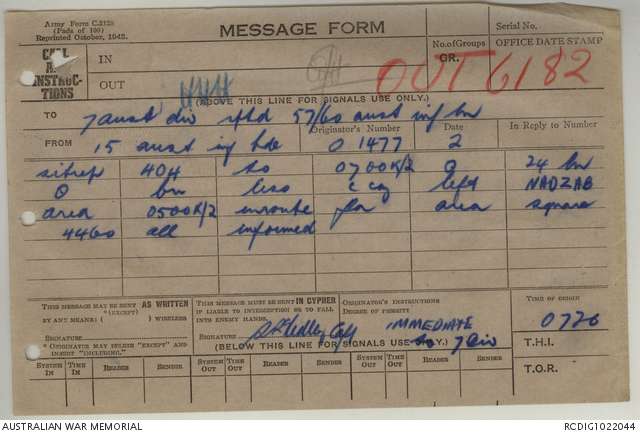 Army Form C.2128
(Pads of 100)
Reprinted October, 1942.
MESSAGE FORM
Serial No.
CALL AND INSTRUC-TIONS
IN
OUT
No. of Groups
GR.
OFFICE DATE STAMP
OUT 6182
(ABOVE THIS LINE FOR SIGNALS USE ONLY.)
TO 7 aust div rptd 57/60 aust inf bn
FROM 15 aust inf bde
Originator's Number
0 1477
Date
2
In Reply to Number
sitrep 404 to 0700K/2 () 24 bn
() bn less c coy left NADZAB
area 0500K/2 enroute for area square
4460 all informed
THIS MESSAGE MAY BE SENT AS WRITTEN
(EXCEPT)
BY ANY MEANS ( ) WIRELESS
SIGNATURE
* ORIGINATOR MAY DELETE "EXCEPT" AND INSERT "INCLUDING."
THIS MESSAGE MUST BE SENT IN CYPHER
IF LIABLE TO INTERCEPTION OR TO FALL INTO ENEMY HANDS.
SIGNATURE
ORIGINATOR'S INSTRUCTIONS
DEGREE OF PRIORITY
IMMEDIATE
to 7 Div
TIME OF ORIGIN
0720
(BELOW THIS LINE FOR SIGNALS USE ONLY.)
T.H.I.
T.O.R.
SYSTEM IN
TIME IN
READER
SENDER
SYSTEM OUT
TIME OUT
READER
SENDER
SYSTEM OUT
TIME OUT
READER
SENDER
AUSTRALIAN WAR MEMORIAL
RCDIG1022044